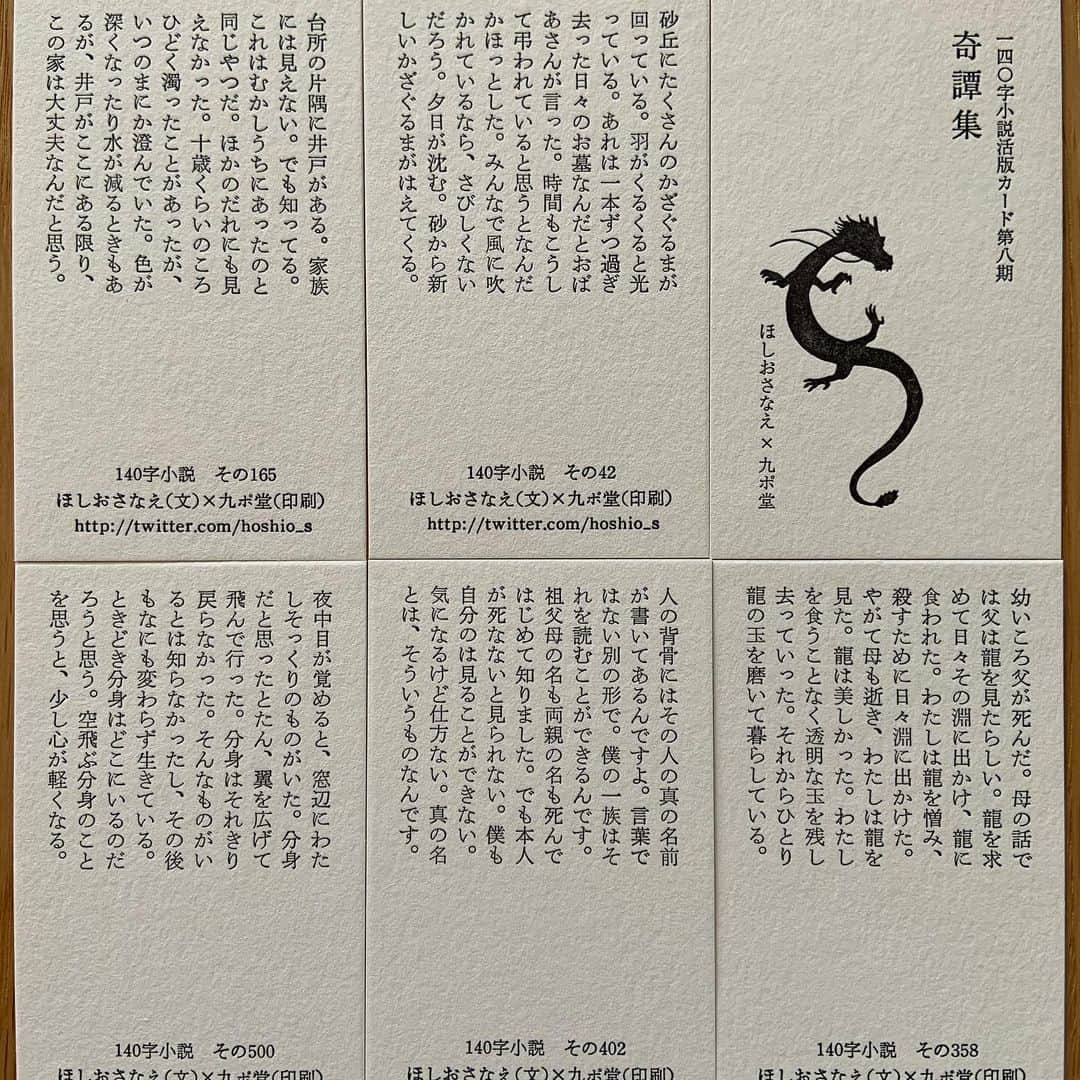 一四〇字小説活版カード第八期
奇譚集
ほしおさなえ×九ポ堂
砂丘にたくさんのかざぐるまが
回っている。羽がくるくると光
っている。あれは一本ずつ過ぎ
去った日々のお墓なんだとおば
あさんが言った。時間もこうし
て弔われていると思うとなんだ
かほっとした。みんなで風に吹
かれているなら、さびしくない
だろう。夕日が沈む。砂から新
しいかざぐるまがはえてくる。
140字小説 その42
ほしおさなえ(文)×九ポ堂(印刷)
http://twitter.com/hoshio_s
台所の片隅に井戸がある。家族
には見えない。でも知ってる。
これはむかしうちにあったのと
同じやつだ。ほかのだれにも見
えなかった。十歳くらいのころ
ひどく濁ったことがあったが、
いつのまにか澄んでいた。色が
深くなったり水が減るときもあ
るが、井戸がここにある限り、
この家は大丈夫なんだと思う。
140字小説 その165
ほしおさなえ(文)×九ポ堂(印刷)
http://twitter.com/hoshio_s
幼いころ父が死んだ。母の話で
は父は龍を見たらしい。龍を求
めて日々その淵に出かけ、龍に
食われた。わたしは龍を憎み、
殺すために日々淵に出かけた。
やがて母も逝き、わたしは龍を
見た。龍は美しかった。わたし
を食うことなく透明な玉を残し
去っていった。それからひとり
龍の玉を磨いて暮らしている。
140字小説 その358
ほしおさなえ(文)×九ポ堂(印刷)
人の背骨にはその人の真の名前
が書いてあるんですよ。言葉で
はない別の形で。僕の一族はそ
れを読むことができるんです。
祖父母の名も両親の名も死んで
はじめて知りました。でも本人
が死なないと見られない。僕も
自分のは見ることができない。
気になるけど仕方ない。真の名
とは、そういうものなんです。
140字小説 その402
ほしおさなえ(文)×九ポ堂(印刷)
夜中目が覚めると、窓辺にわた
しそっくりのものがいた。分身
だと思ったとたん、翼を広げて
飛んで行った。分身はそれきり
戻らなかった。そんなものがい
るとは知らなかったし、その後
もなにも変わらず生きている。
ときどき分身はどこにいるのだ
ろうと思う。空飛ぶ分身のこと
を思うと、少し心が軽くなる。
140字小説 その500
ほしおさなえ(文)×九ポ堂(印刷)